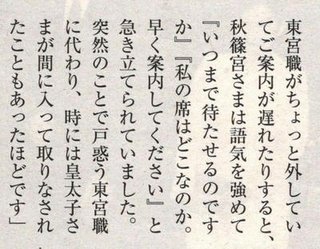 東宮職がちょっと外してい
てご案内が遅れたりすると、
秋篠宮さまは語気を強めて
『いつまで待たせるのです
か』『私の席はどこなのか。
早く案内してください』と
急き立てられていました。
突然のことで戸惑う東宮職
に代わり、時には皇太子さ
まが間に入って取りなされ
たこともあったほどです」